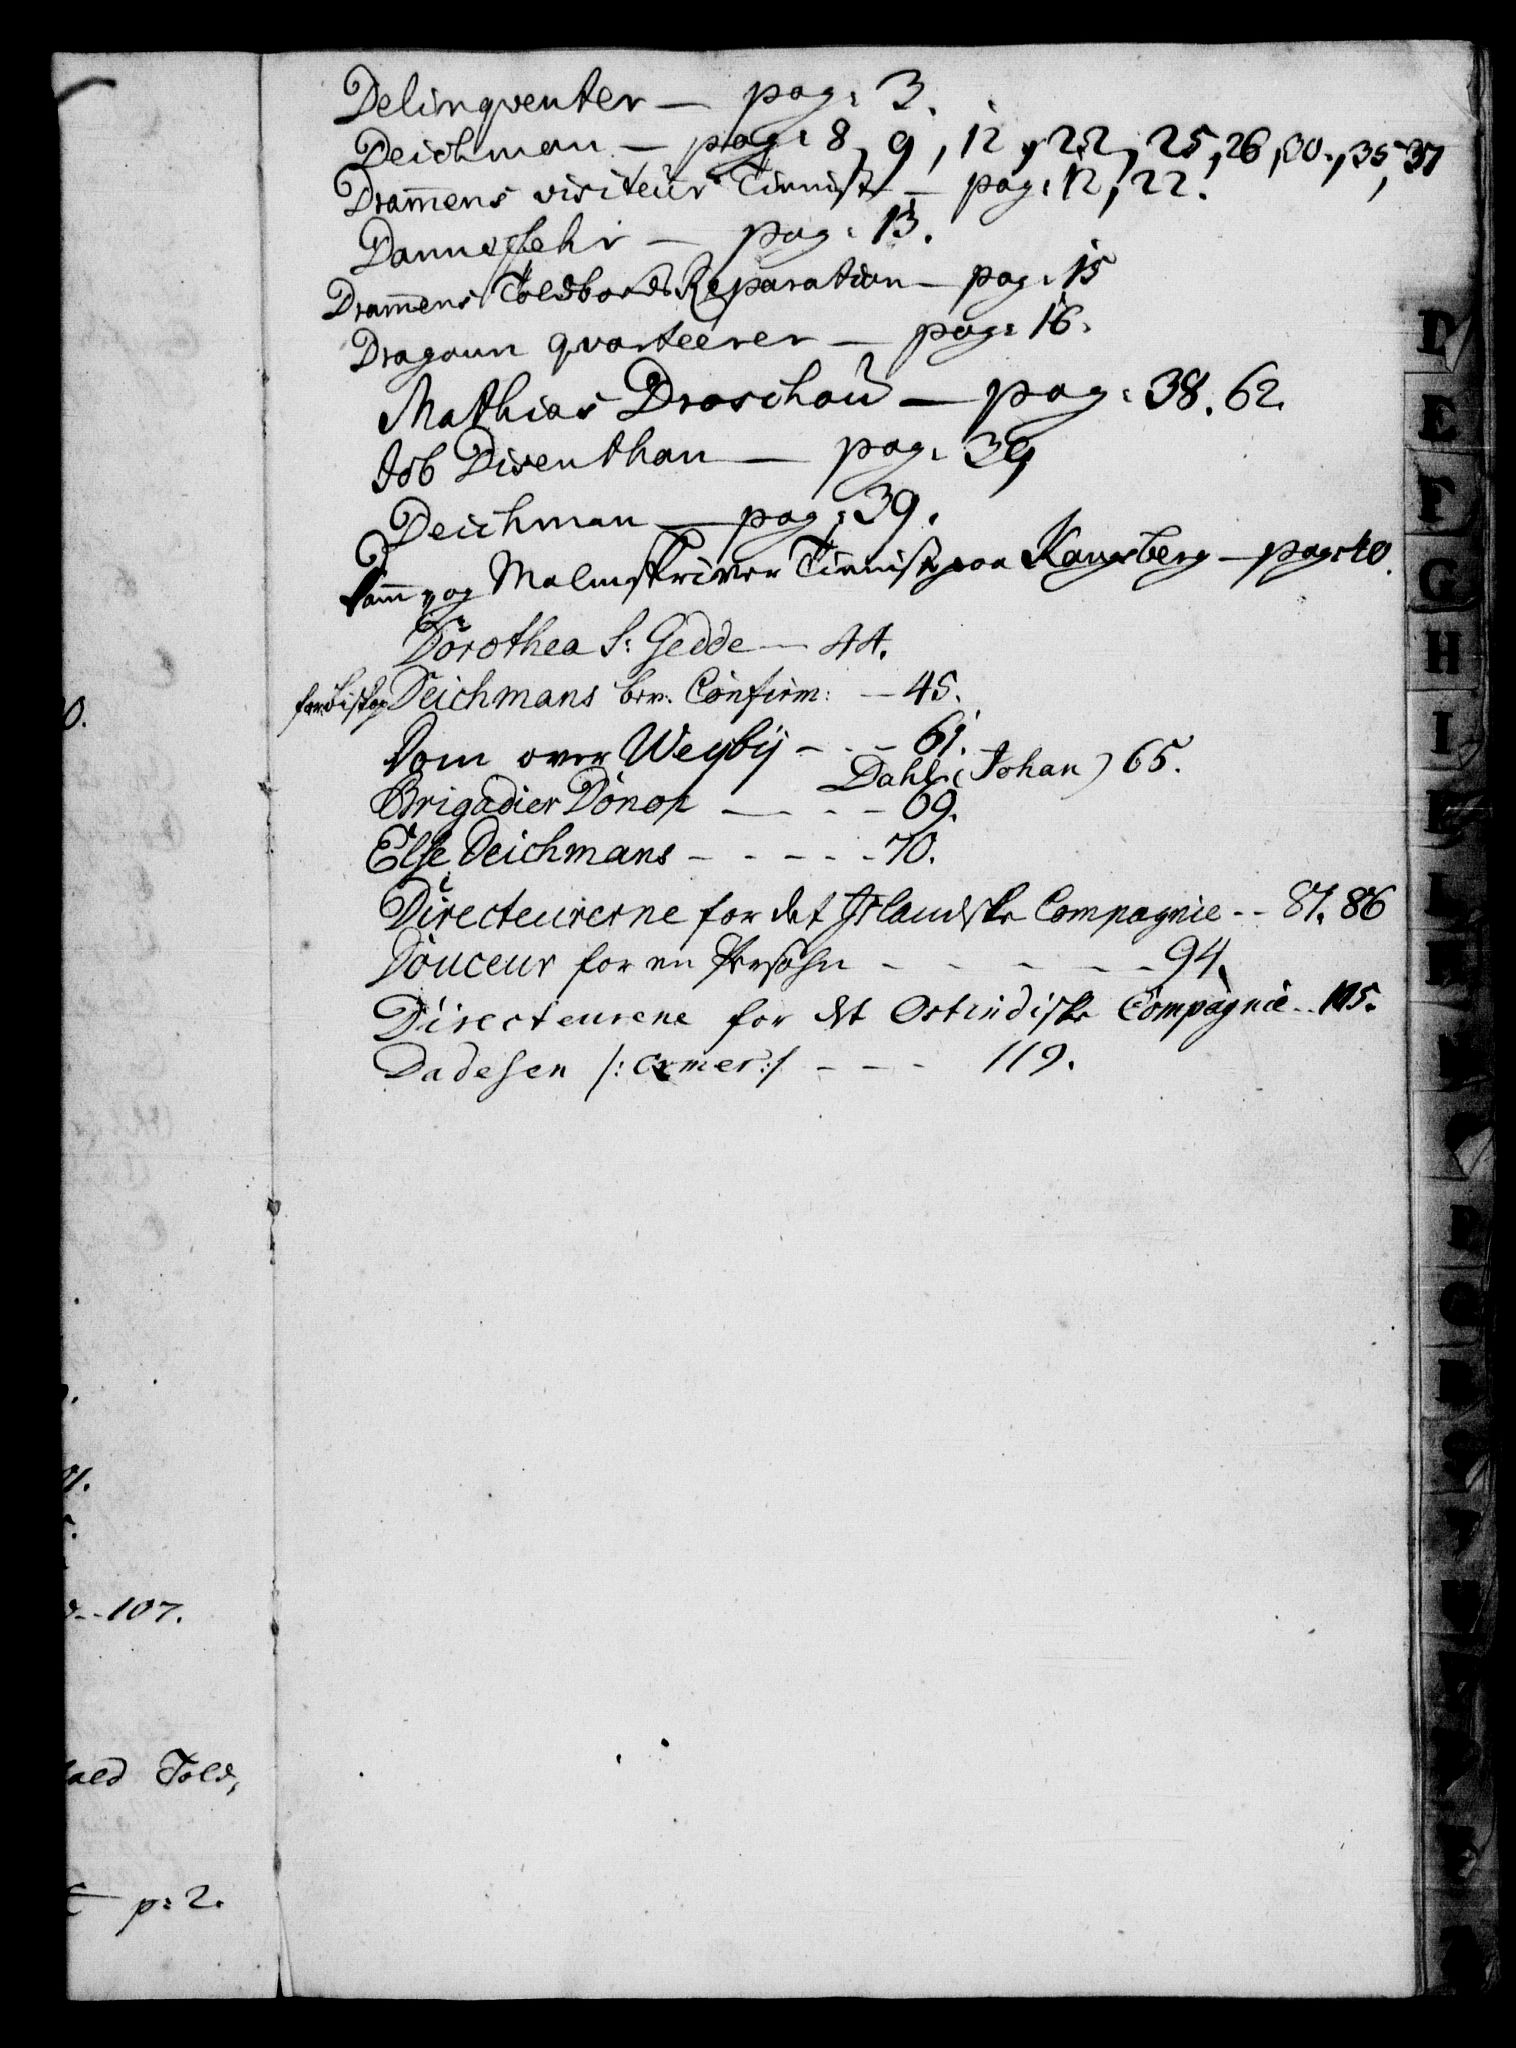 Delinqventer — pag: 3.
Deichman — pag: 8, 9, 12, 22, 25, 26, 30, 35, 37
Dram̄ens visiteur Tienniste — pag: 12, 22.
Dannefehr — pag: 13.
Dram̄ens Toldbods Reparation — pag: 15
Dragoun qvarteerer — pag: 16.
Mathias Draschou — pag: 38. 62.
Job Disenthan — pag: 39
Deichman — pag: 39.
Dam̄ og Malmskriver Tienniste paa Kongsberg — pag: 40.
Dorothea S: Gedde — 44.
for Biskop Deichmans brv. Confirm: — 45.
Dom over Weyby - - - 61.
Dahl (Johan) 65.
Brigadier Dönop — - - 69.
Else Deichmans - - - - - 70.
Directeurerne for det Islandske Compagnie - - 81. 86
Douceur for en Persohn - - - - - - 94.
Directeurene for det Ostindiske Compagnie - - 105.
Dadesen /: :/ - - - 119.
0.
01.
- - 107.
Told,
p: 2.
D
E
F
G
H
I
K
L
M
N
O
P
Q
R
S
T